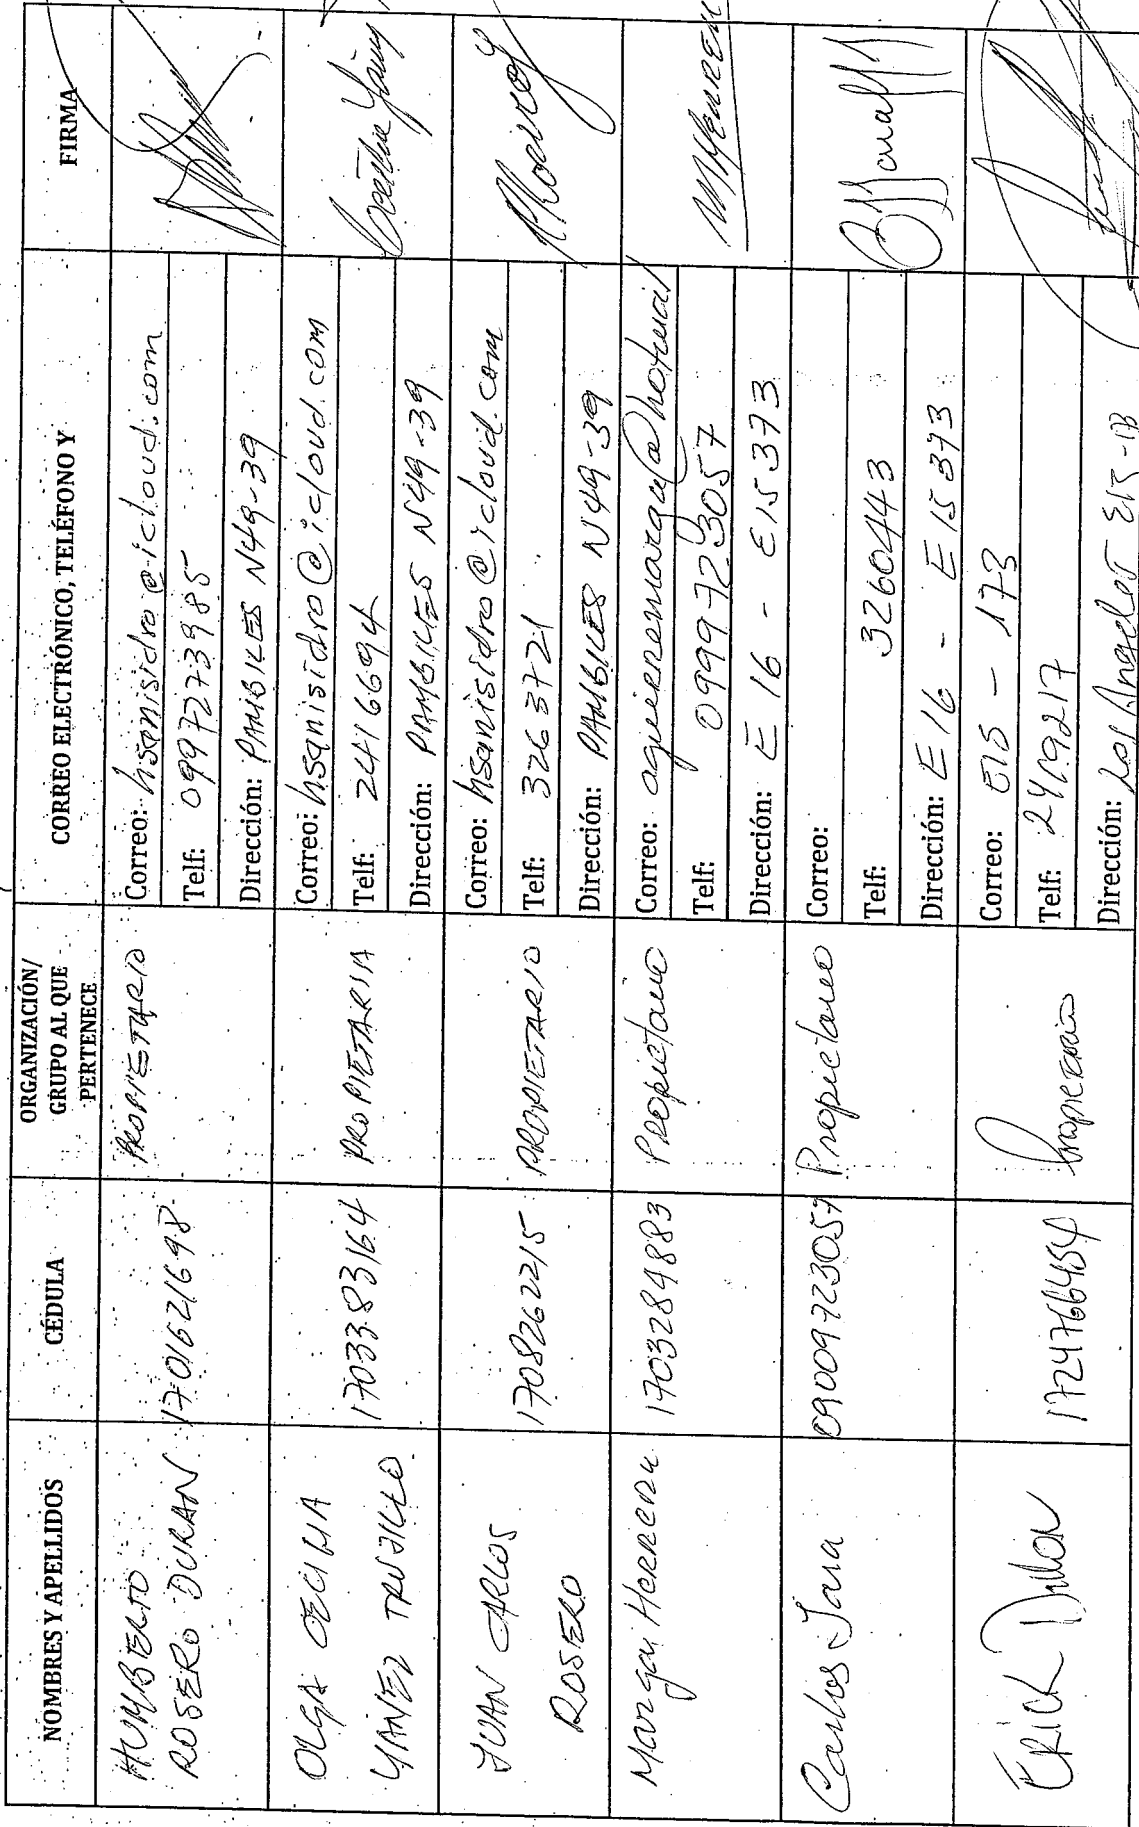 NOMBRES Y APELLIDOS
CÉDULA
ORGANIZACIÓN/
GRUPO AL QUE
PERTENECE
CORREO ELECTRÓNICO, TELÉFONO Y
FIRMA
HUMBERTO
ROSERO DURAN
1701621698
PROPIETARIO
Correo: hsanisidro@icloud.com
Telf: 0997273985
Dirección: PAMBILES N49-39
OLGA CECILIA
YANEZ TRUJILLO
1703383164
PROPIETARIA
Correo: hsanisidro@icloud.com
Telf: 2416694
Dirección: PAMBILES N49-39
JUAN CARLOS
ROSERO
1708262215
PROPIETARIO
Correo: hsanisidro@icloud.com
Telf: 3263721
Dirección: PAMBILES N49-39
Margai Herrera
1703284883
Propietario
Correo: aguierremarga@hotmail
Telf: 0999723057
Dirección: E 16 - E15373
Carlos Jara
09009723057
Propietario
Correo:
Telf: 3260443
Dirección: E16 - E15373
ERICK
1724766454
Propietario
Correo: E15 - 173
Telf: 2419217
Dirección: Los Angeles E15-